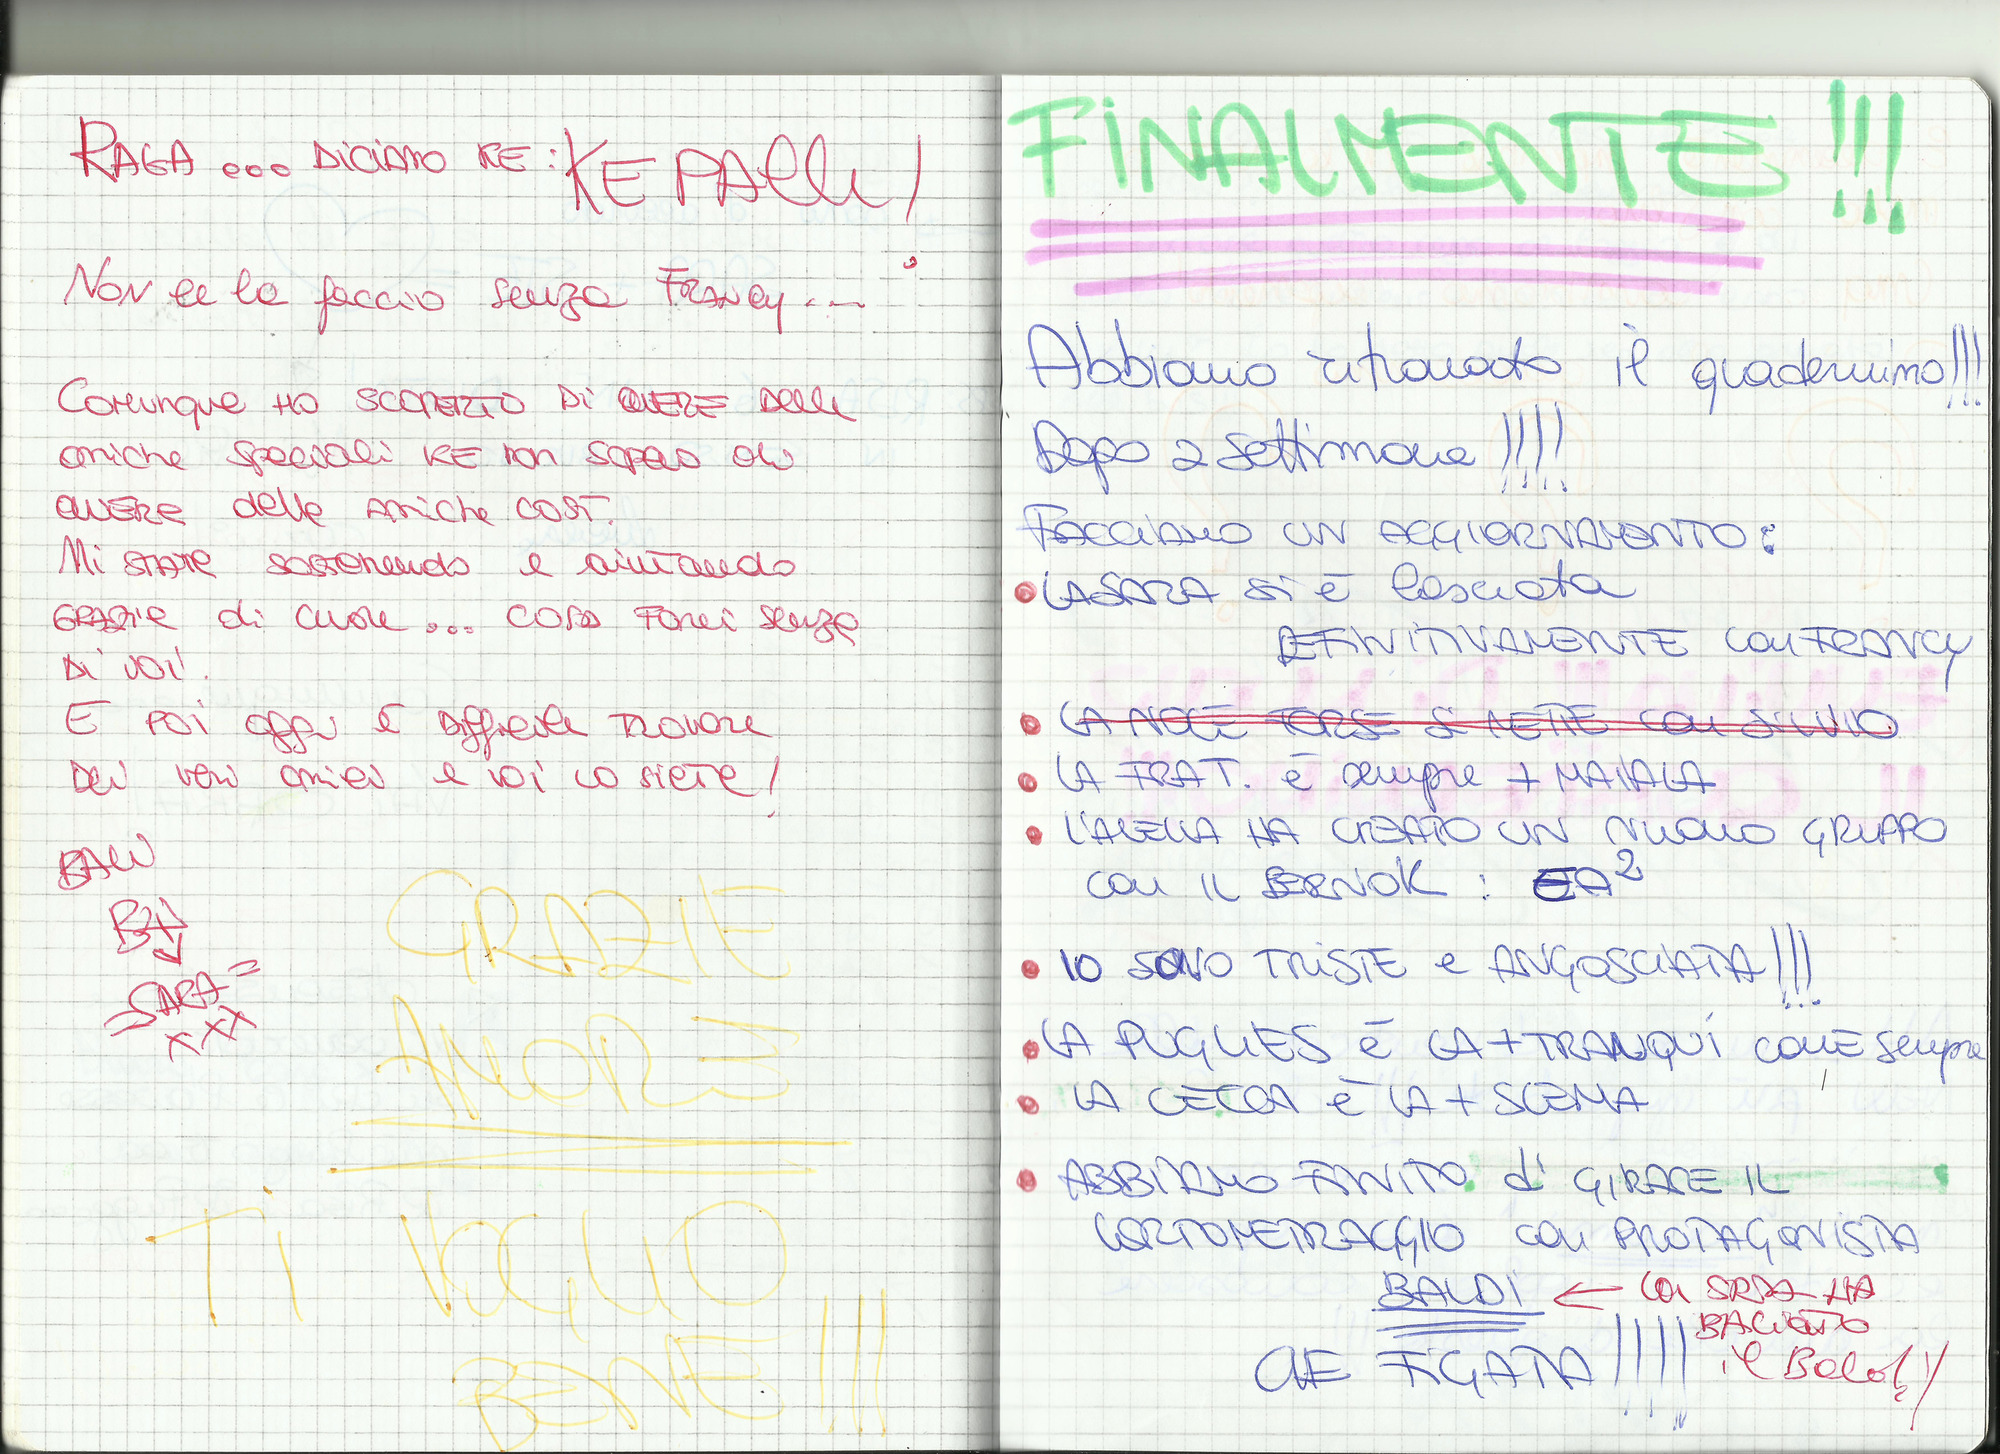 RAGA ... DICIAMO KE: KE PAlle!
NON ce la faccio senza FRANCY ....
Comunque HO SCOPERTO Di AVERE DELLE
amiche speciali KE non sapevo di
AVERE delle AMICHE COSÌ.
Mi STATE sostenendo e aiutando
GRAZIE di cuore ... COSA FAREI senza
Di VOI!
E POI oggi è difficile TROVARE
DEI veri amici e voi LO SIETE!
BALU
SARA =
XXX
GRAZIE
AMORE
TI VOGLIO
BENE!!!
FiNALMENTE!!!
Abbiamo ritrovato il quadernino!!!
Dopo 2 settimane!!!!
FACCIAMO UN AGGIORNAMENTO:
• LA SARA si è lasciata
DEFINITIVAMENTE con FRANCY
• LA NOCE FORSE SI METTE con SILVIO
• LA FRAT. è sempre + MAIALA
• L'ALELLA HA CREATO UN NUOVO GRUPPO
con IL BERNOK : EA²
• IO SONO TRISTE e ANGOSCIATA!!!
• LA PUGLIES è LA + TRANQUI come sempre
• LA CECCA è LA + SCEMA
• ABBIAMO FINITO di GIRARE IL
CORTOMETRAGGIO con PROTAGONISTA
BALDI ← LA SARA HA
BACIATO
CHE FIGATA!!!!! il Baldi!